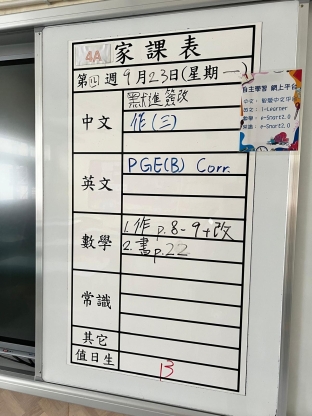 4A 家課表
第四週9月23日(星期一)
中文
簽改
作(三)
英文
PGE(B) Corr.
數學
1. 作 p.8-9+改
2. 書p.22
常識
其它
值日生
13
自主學習 網上平台
i-Learner
e-Smart2.0
e-Smart2.0